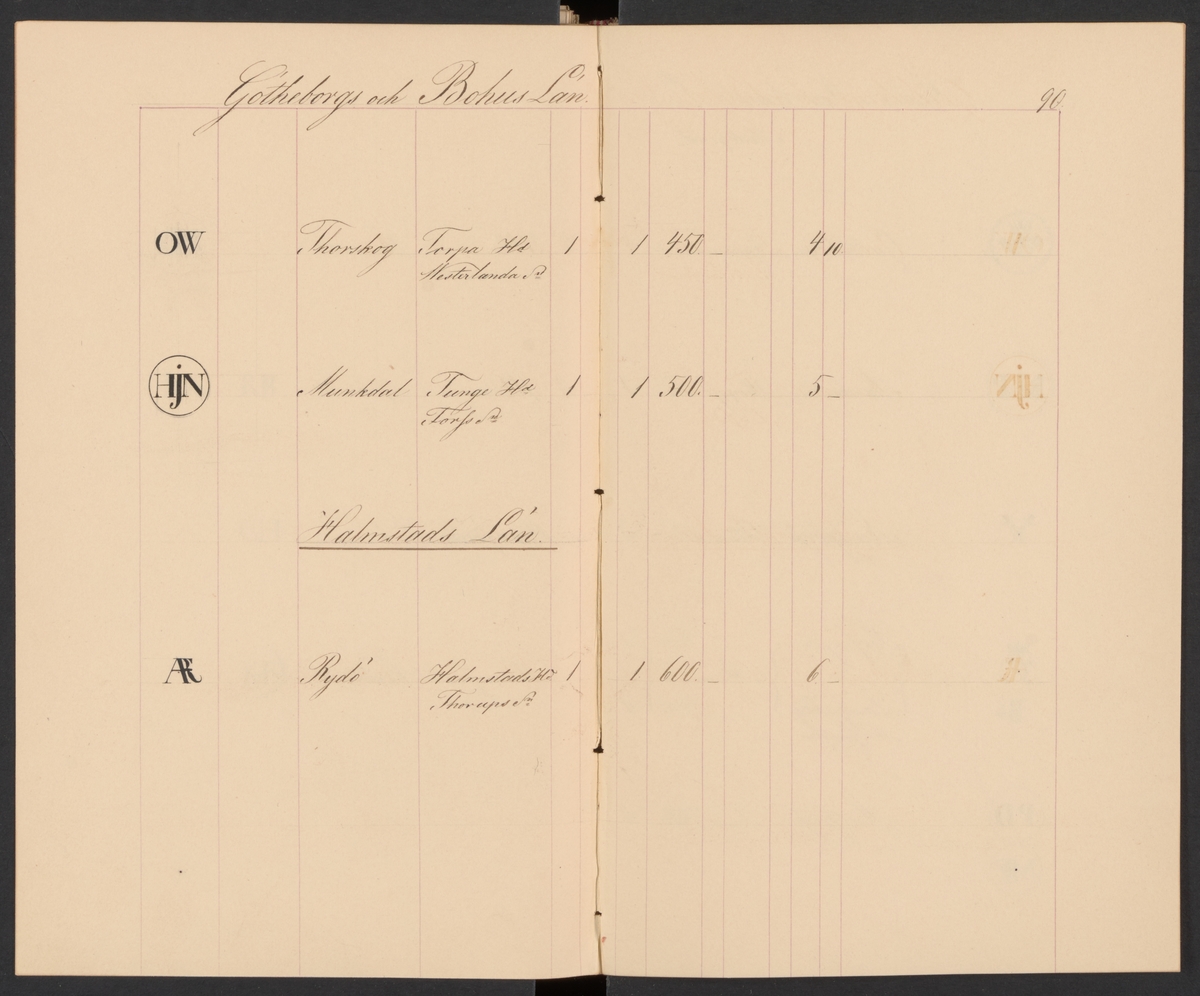 Götheborgs och Bohus Län. 90.
OW Thorskog Torpa Hd 1 1 450. – 4 10
Westerlanda Sn
HJN Munkdal Tunge Hd 1 1 500. – 5 –
Forss Sn
Halmstads Län.
AR Rydö Halmstads Hd 1 1 600. – 6 –
Thorups Sn